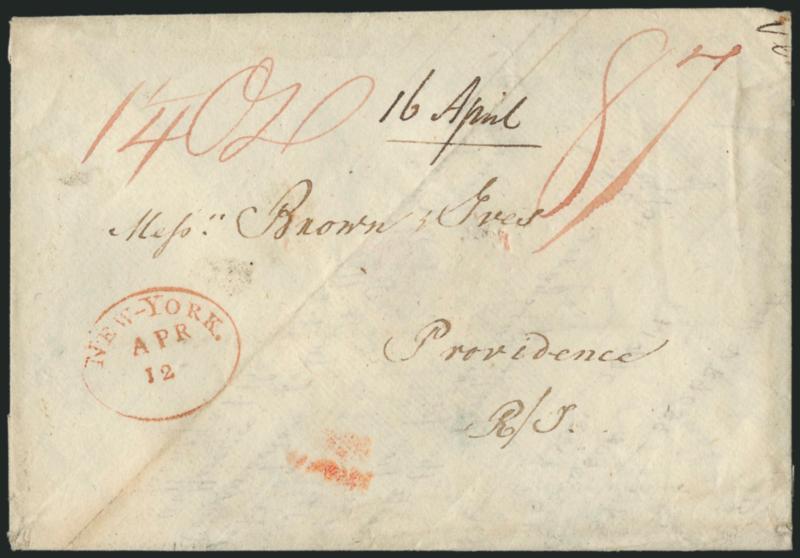 1 1/4 Oz 16 April 87
Messrs. Brown & Ives
NEW-YORK.
APR
12
Providence
R/I.